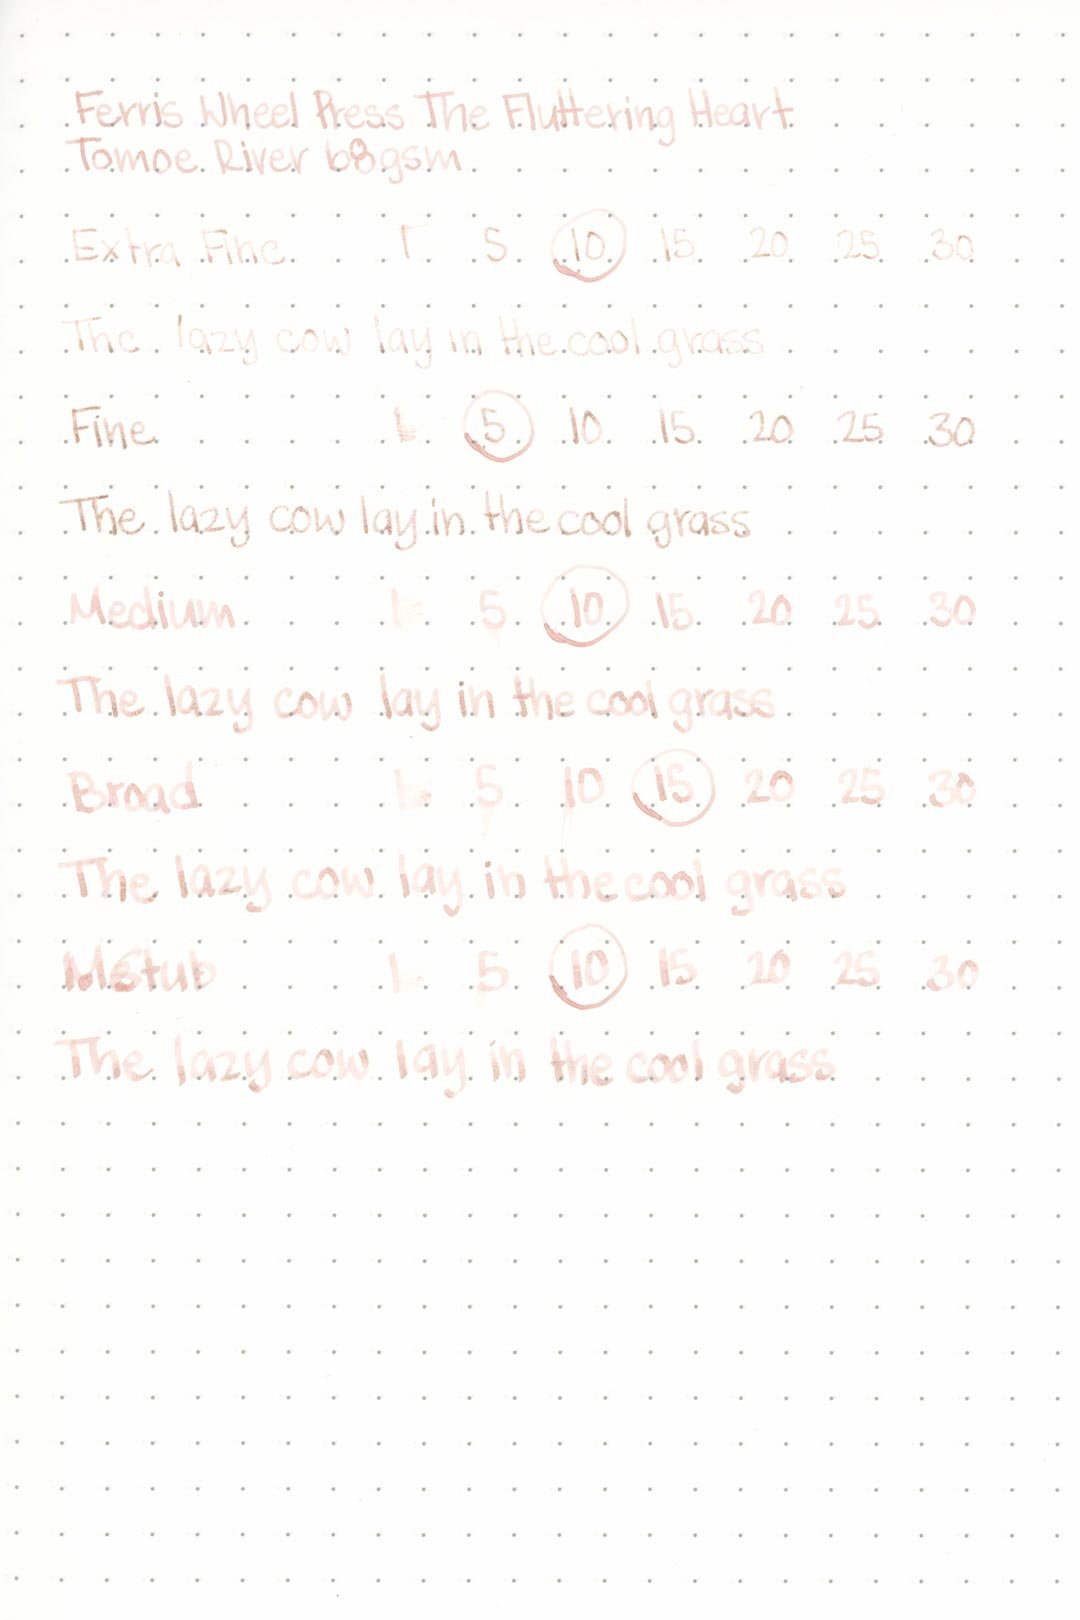 Ferris Wheel Press The Fluttering Heart
Tomoe River 68gsm
Extra Fine 1 5 10 15 20 25 30
The lazy cow lay in the cool grass
Fine 1 5 10 15 20 25 30
The lazy cow lay in the cool grass
Medium 1 5 10 15 20 25 30
The lazy cow lay in the cool grass
Broad 1 5 10 15 20 25 30
The lazy cow lay in the cool grass
MStub 1 5 10 15 20 25 30
The lazy cow lay in the cool grass